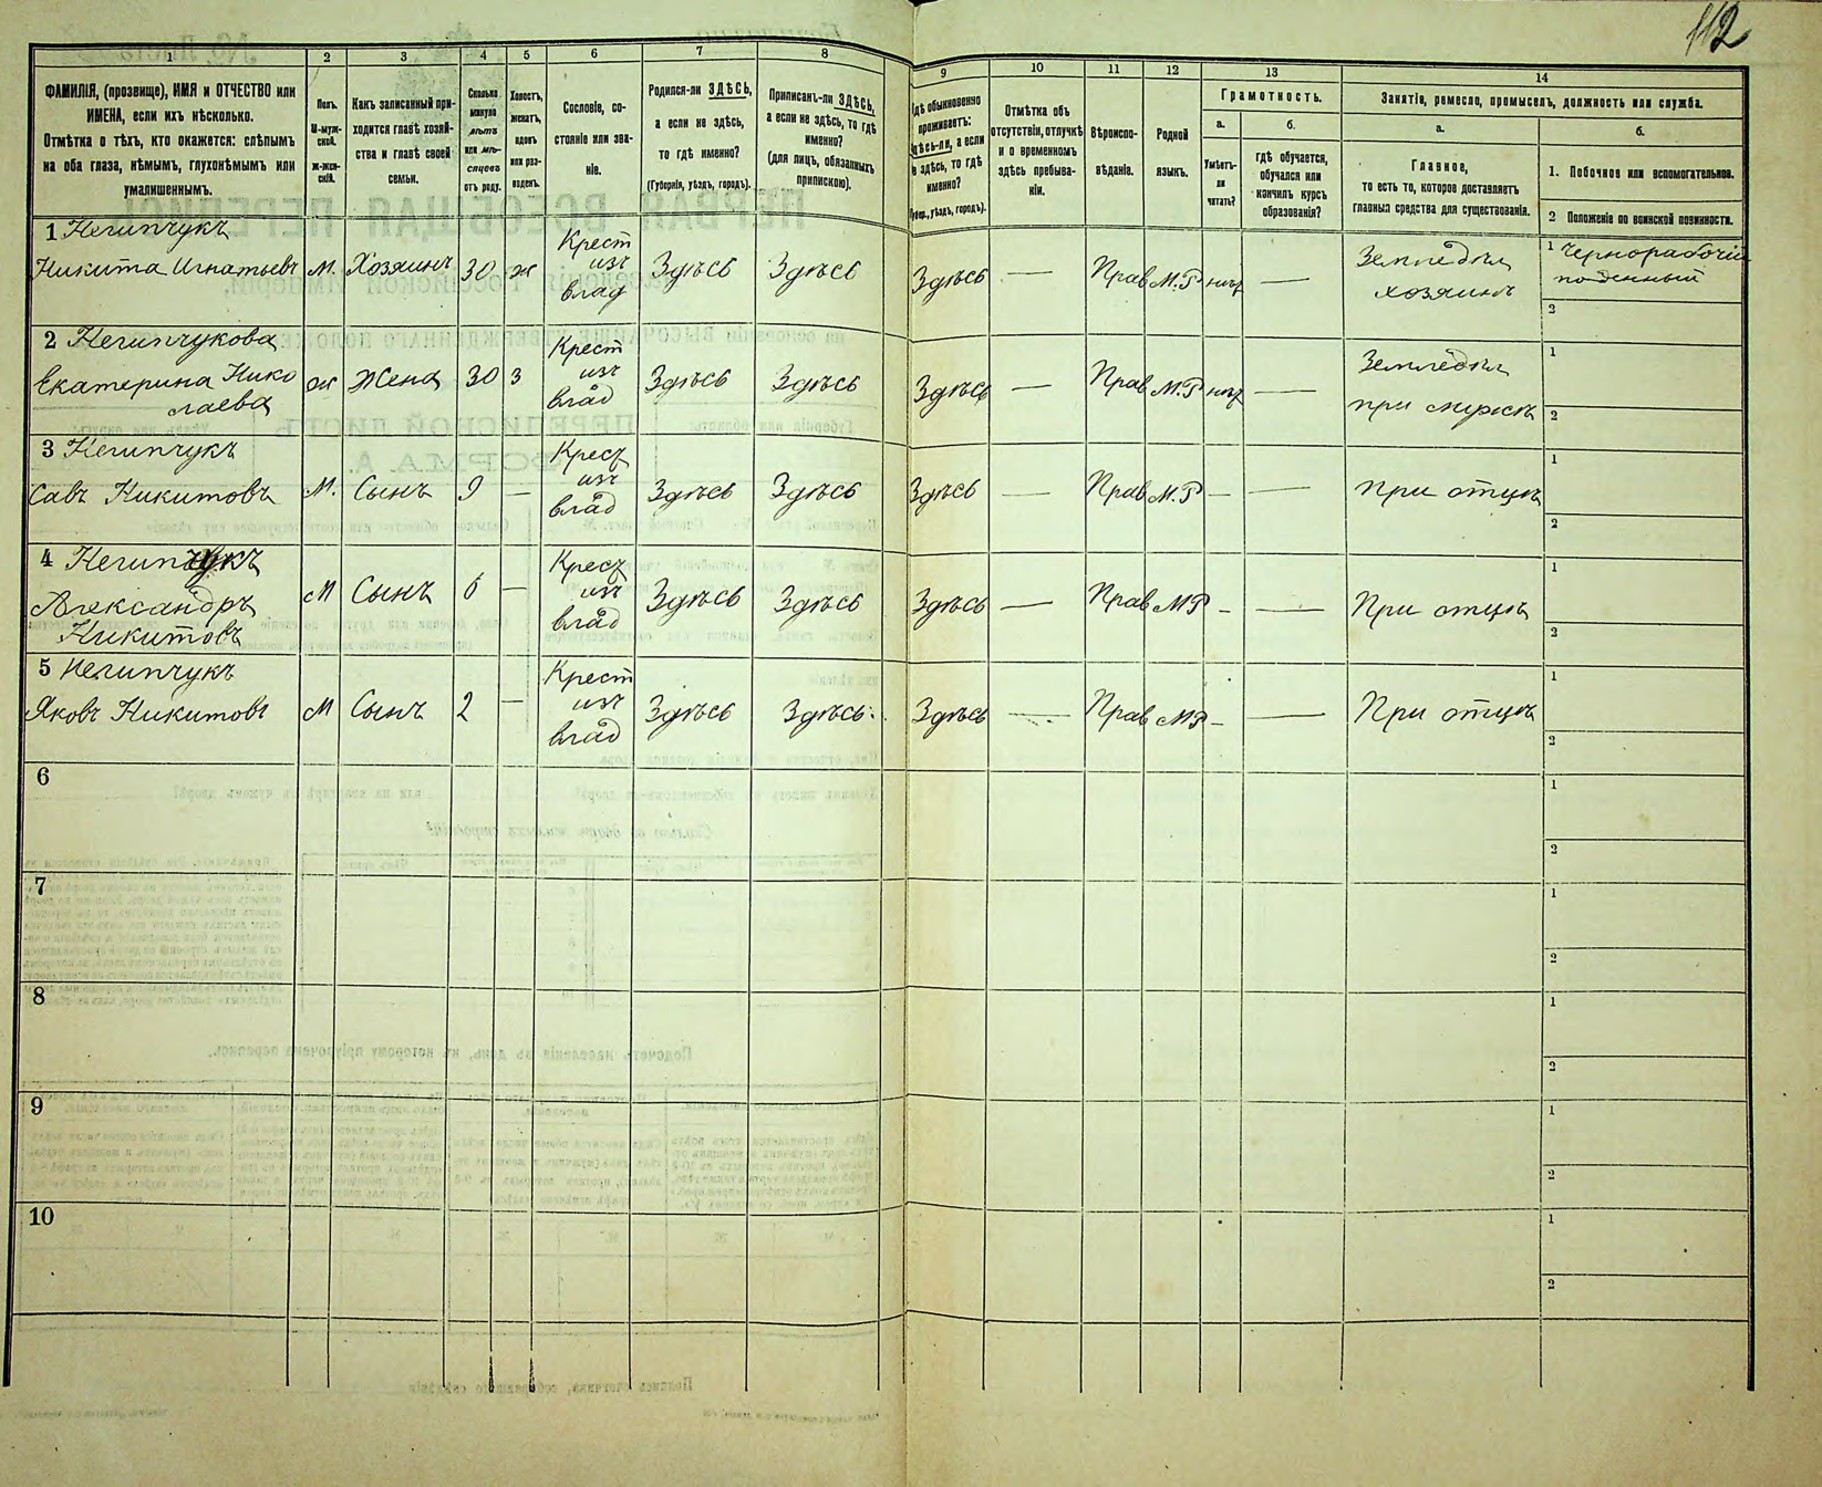 112
1
2
3
4
5
6
7
8
9
10
11
12
13
14
ФАМИЛІЯ, (прозвище), ИМЯ и ОТЧЕСТВО или
ИМЕНА, если ихъ нѣсколько.
Отмѣтка о тѣхъ, кто окажется: слѣпымъ
на оба глаза, нѣмымъ, глухонѣмымъ или
умалишеннымъ.
Полъ.
М-муж-
ской.
Ж-жен-
скій.
Какъ записанный при-
ходится главѣ хозяй-
ства и главѣ своей
семьи.
Сколько
минуло
лѣтъ
или мѣ-
сяцевъ
отъ роду.
Холостъ,
женатъ,
вдовъ
или раз-
веденъ.
Сословіе, со-
стояніе или зва-
ніе.
Родился-ли ЗДѢСЬ,
а если не здѣсь,
то гдѣ именно?
(Губернія, уѣздъ, городъ).
Приписанъ-ли ЗДѢСЬ,
а если не здѣсь, то гдѣ
именно?
(для лицъ, обязанныхъ
припискою).
Гдѣ обыкновенно
проживаетъ:
здѣсь-ли, а если
не здѣсь, то гдѣ
именно?
(Губер., уѣздъ, городъ).
Отмѣтка объ
отсутствіи, отлучкѣ
и о временномъ
здѣсь пребыва-
ніи.
Вѣроиспо-
вѣданіе.
Родной
языкъ.
Грамотность.
а.
Умѣетъ-
ли
читать?
б.
гдѣ обучается,
обучался или
кончилъ курсъ
образованія?
Занятіе, ремесло, промыселъ, должность или служба.
а.
Главное,
то есть то, которое доставляетъ
главныя средства для существованія.
б.
1. Побочное или вспомогательное.
2 Положеніе по воинской повинности.
1 Негипчукъ
Никита Игнатьевъ М. Хозяинъ 30 ж Крест изъ влад Здѣсь Здѣсь Здѣсь — Прав М.Р нѣтъ — Земледѣл хозяинъ 1 Чернорабочій
поденный
2
2 Негипчукова
Екатерина Нико
лаева ж Жена 30 з Крест изъ влад Здѣсь Здѣсь Здѣсь — Прав М.Р нѣтъ — Земледѣл при мужѣ 1
2
3 Негипчукъ
Савъ Никитовъ М. Сынъ 9 — Крест изъ влад Здѣсь Здѣсь Здѣсь — Прав М.Р — — При отцѣ 1
2
4 Негипчукъ
Александръ
Никитовъ М Сынъ 6 — Крест изъ влад Здѣсь Здѣсь Здѣсь — Прав МР - — При отцѣ 1
2
5 Негипчукъ
Яковъ Никитовъ М Сынъ 2 — Крест изъ влад Здѣсь Здѣсь. Здѣсь — Прав МР - — При отцѣ 1
2
6 1
2
7 1
2
8 1
2
9 1
2
10 1
2